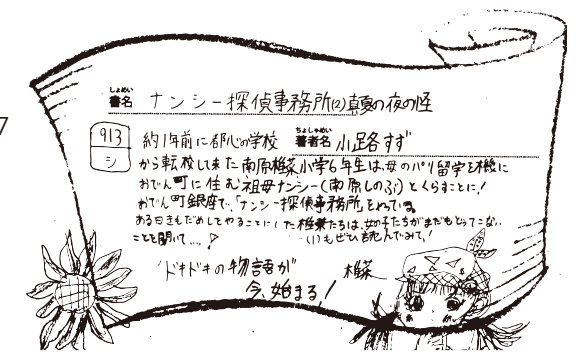 7
しょめい
書名 ナンシー探偵事務所(2)真夏の夜の怪
913
シ
ちょしゃめい
著者名 小路すず
約1年前に都心の学校
から転校して来た南原椎菜小学6年生は、母のパリ留学を機に
おでん町に住む祖母ナンシー(南原しのぶ)とくらすことに!
おでん町銀座で、「ナンシー探偵事務所」をやっている。
ある日きもだめしをやることにした椎菜たちは、女の子たちがまだもどってこない
ことを聞いて…
(1)もぜひ読んでみて!
ドキドキの物語が
今、始まる!
椎菜